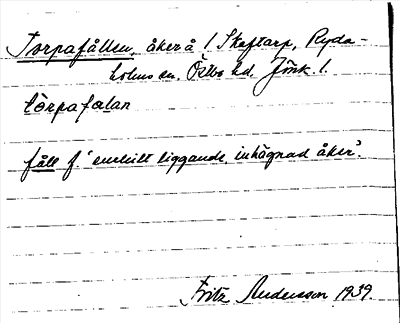 Torpafållen, åker å l Skaftarp, Ryda-
holms sn. Östbo hd, Jönk. l.
tòrpafålan
fåll f 'enskilt liggande, inhägnad åker'.
Fritz Andersson 1939.